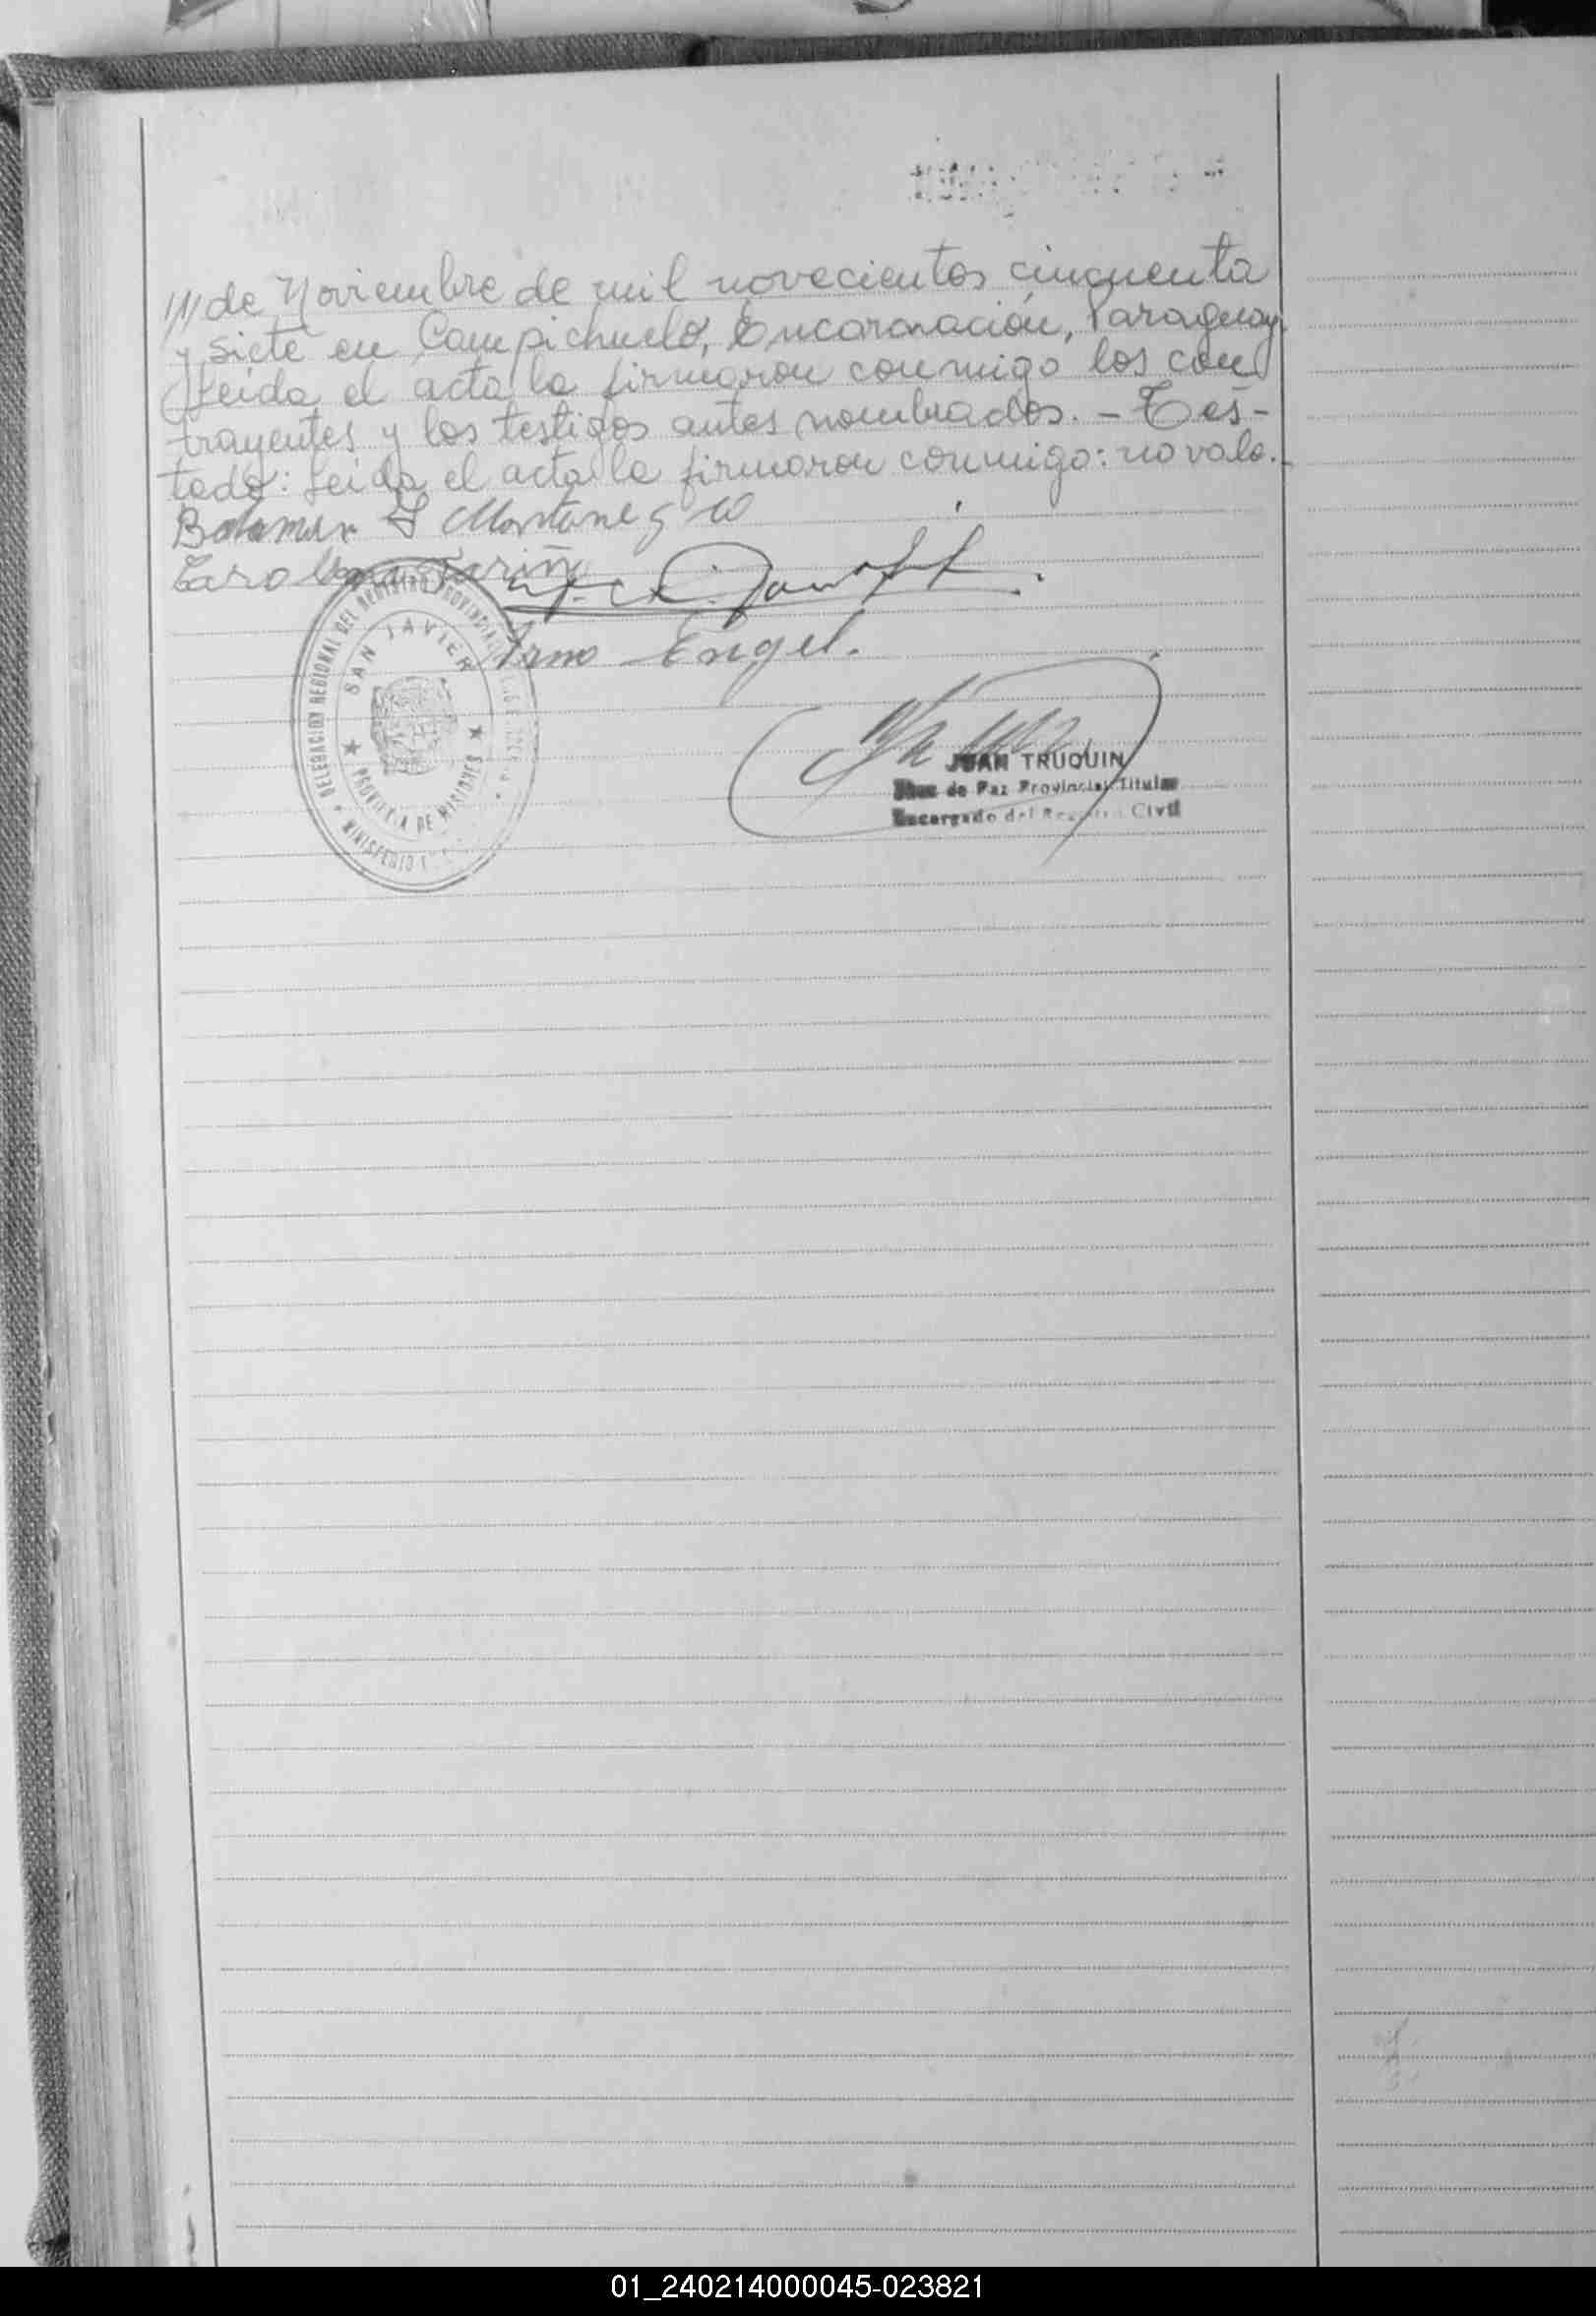 /// de Noviembre de mil novecientos cincuenta
y siete en Campichuelo, Encarnación, Paraguay.
(Leida el acta la firmaron conmigo los con)
trayentes y los testigos antes nombrados. - Tes-
tado: Leida el acta la firmaron conmigo: no vale.
Montanez
Carolina Fariñ
Arno Engel.
DELEGACION REGIONAL DEL REGISTRO PROVINCIAL
SAN JAVIER
PROVINCIA DE MISIONES
MINISTERIO
JUAN TRUQUIN
Juez de Paz Provincial Titular
Encargado del Registro Civil
01_240214000045-023821